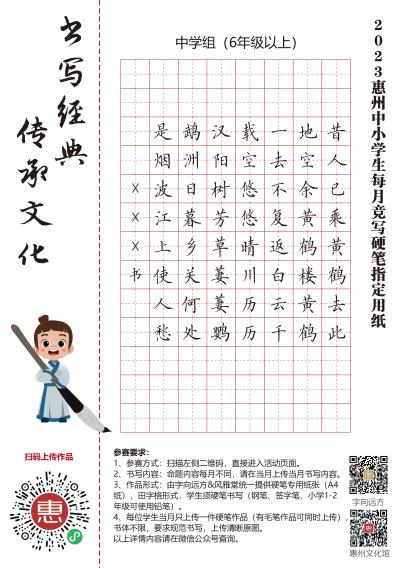 书写经典
传承文化
中学组（6年级以上）
2023惠州中小学生每月竞写硬笔指定用纸
昔人已乘黄鹤去此
地空余黄鹤楼黄鹤
一去不复返白云千
载空悠悠晴川历历
汉阳树芳草萋萋鹦
鹉洲日暮乡关何处
是烟波江上使人愁
XXX书
扫码上传作品
惠
参赛要求：
1、参赛方式：扫描左侧二维码，直接进入活动页面。
2、书写内容：命题内容每月不同，请在当月上传当月书写内容。
3、作品形式：由字向远方&风雅堂统一提供硬笔专用纸张（A4
纸），田字格形式，学生须硬笔书写（钢笔、签字笔、小学1-2
年级可使用铅笔）。
4、每位学生当月只上传一件硬笔作品（有毛笔作品可同时上传），
书体不限，要求规范书写，上传清晰原图。
以上详情内容请在微信公众号查询。
字向远方
惠州文化馆